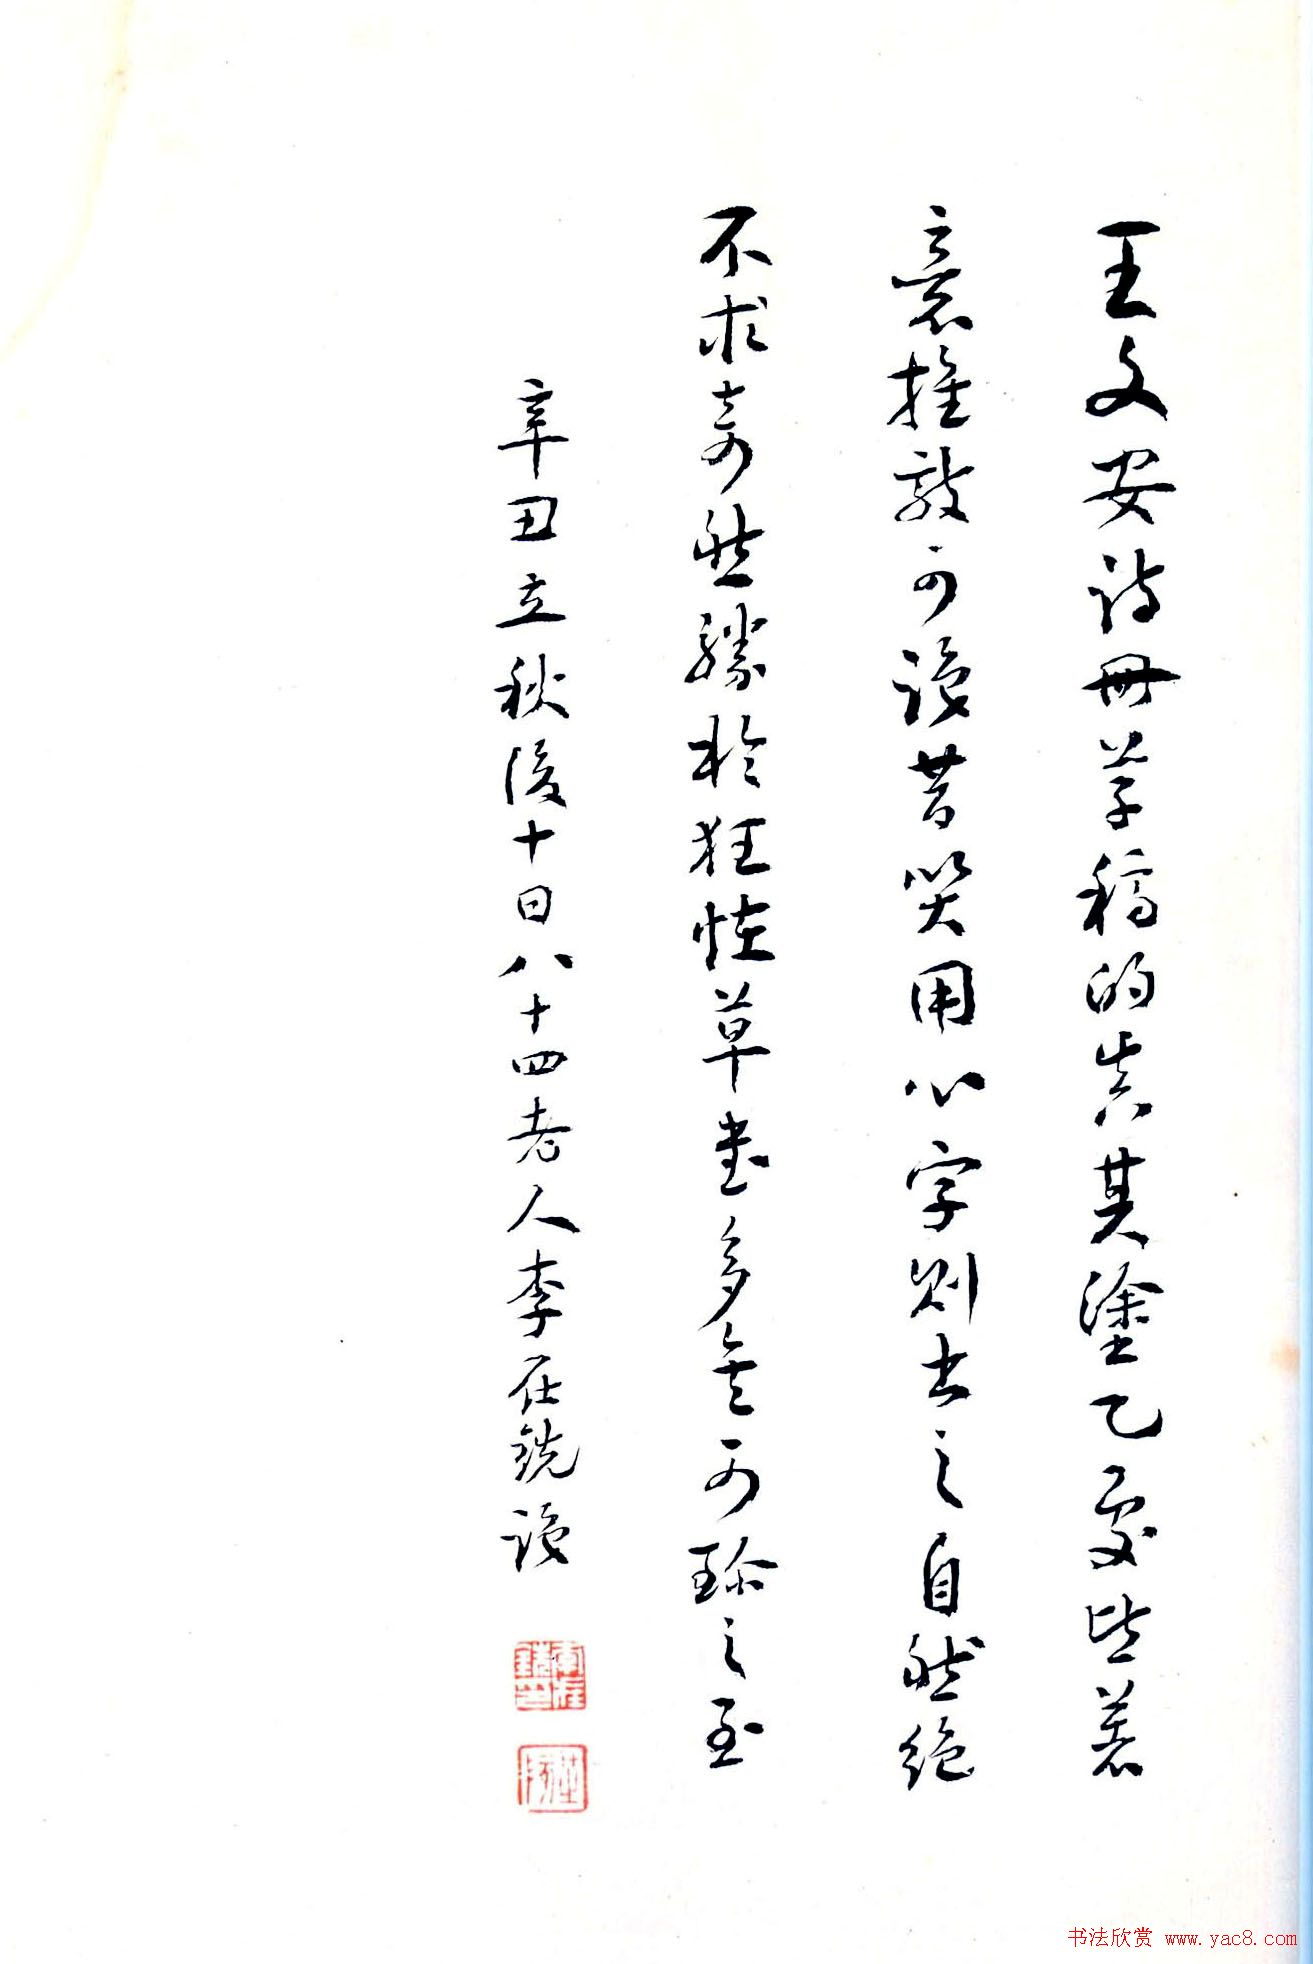 王文安詩冊草稿的真其塗乙處皆著
意推敲可識昔哭用心字則出之自然絕
不求奇然勝於狂怪草書多矣可珍之至
辛丑立秋後十日八十四老人李在銑識
李在銑印
书法欣赏 www.yac8.com